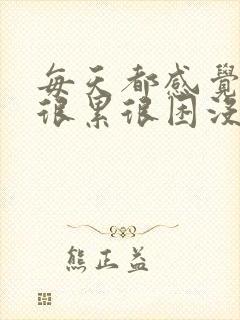 每天都感覺
很累很困没
熊正益